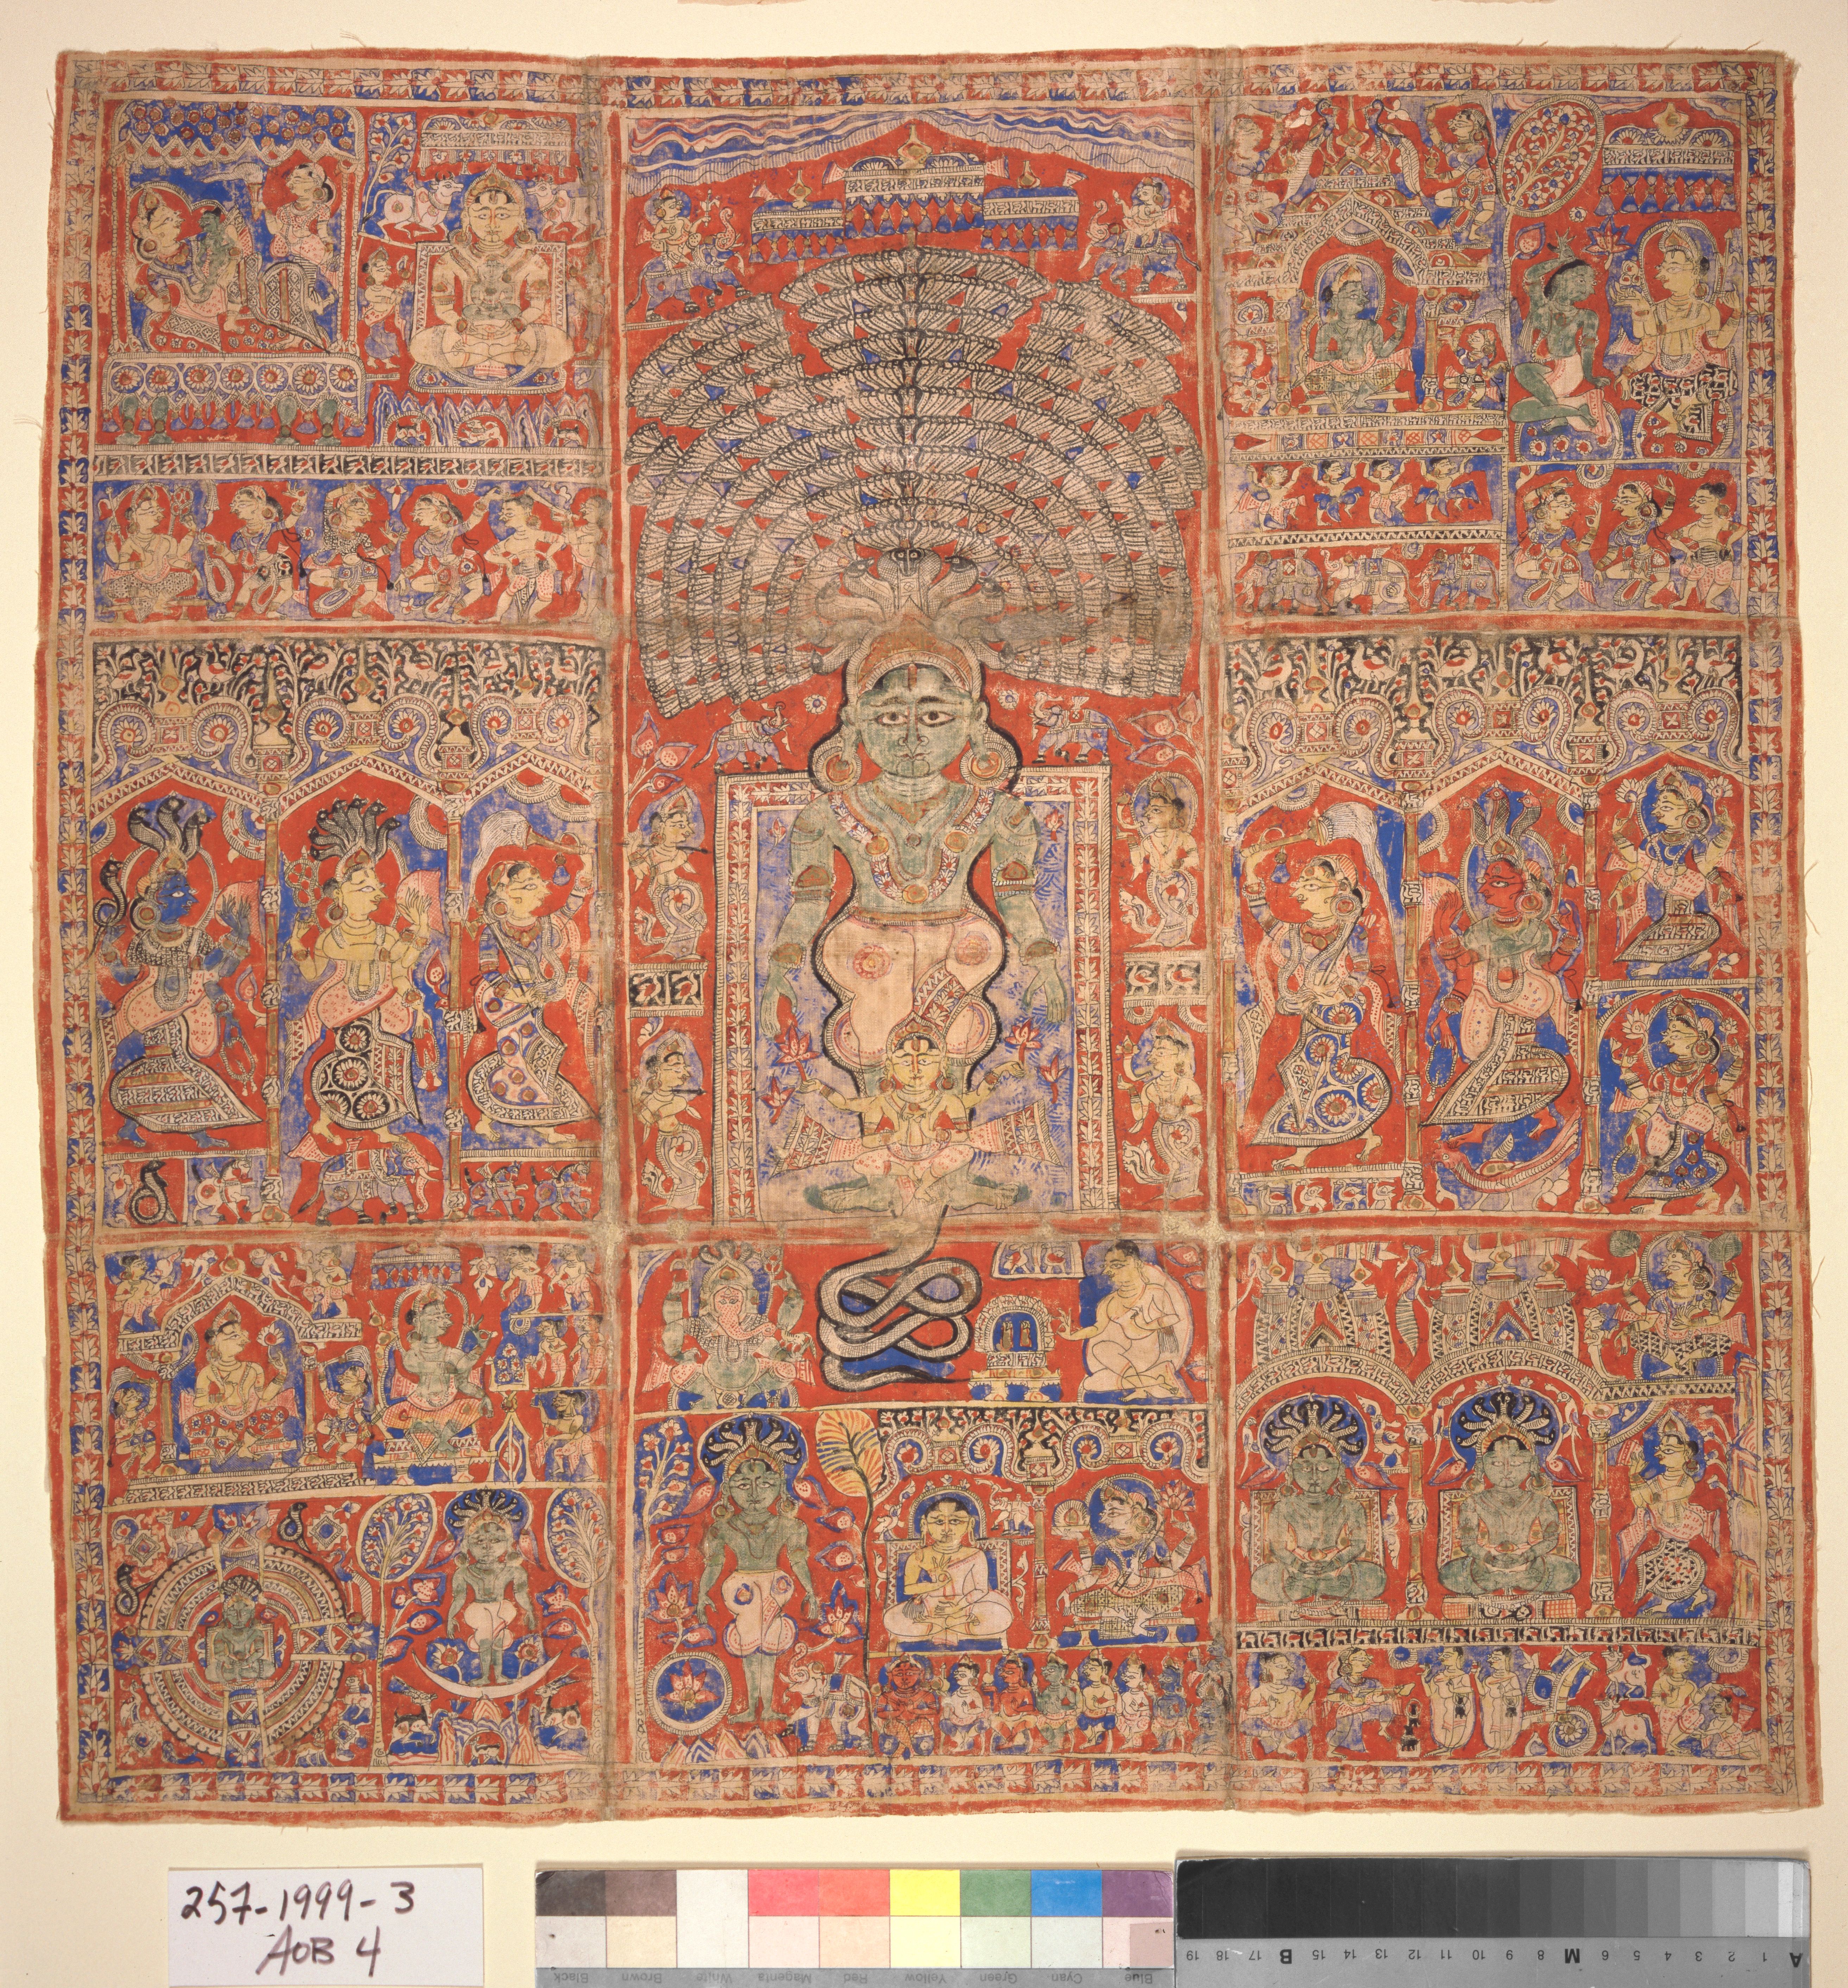 257-1999-3
AOB 4
Black Brown White Magenta Red Yellow Green Cyan Blue
19 18 17 B 15 14 13 12 11 10 9 8 M 6 5 4 3 2 1 A